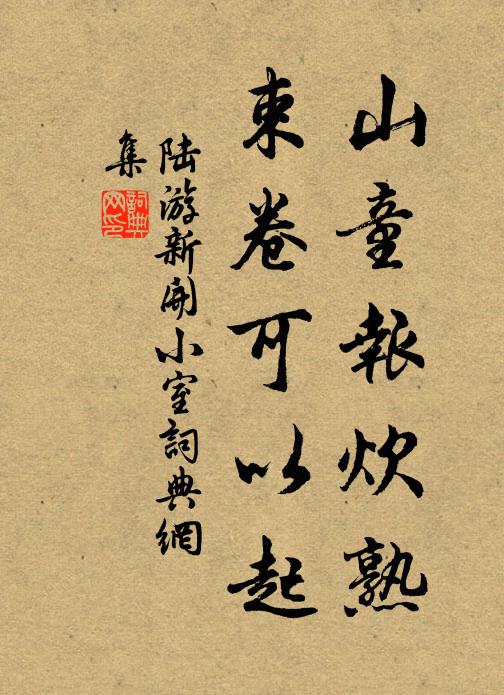 山童報炊熟
束卷可以起
陸游新開小室詞典網
集
詞典
网印